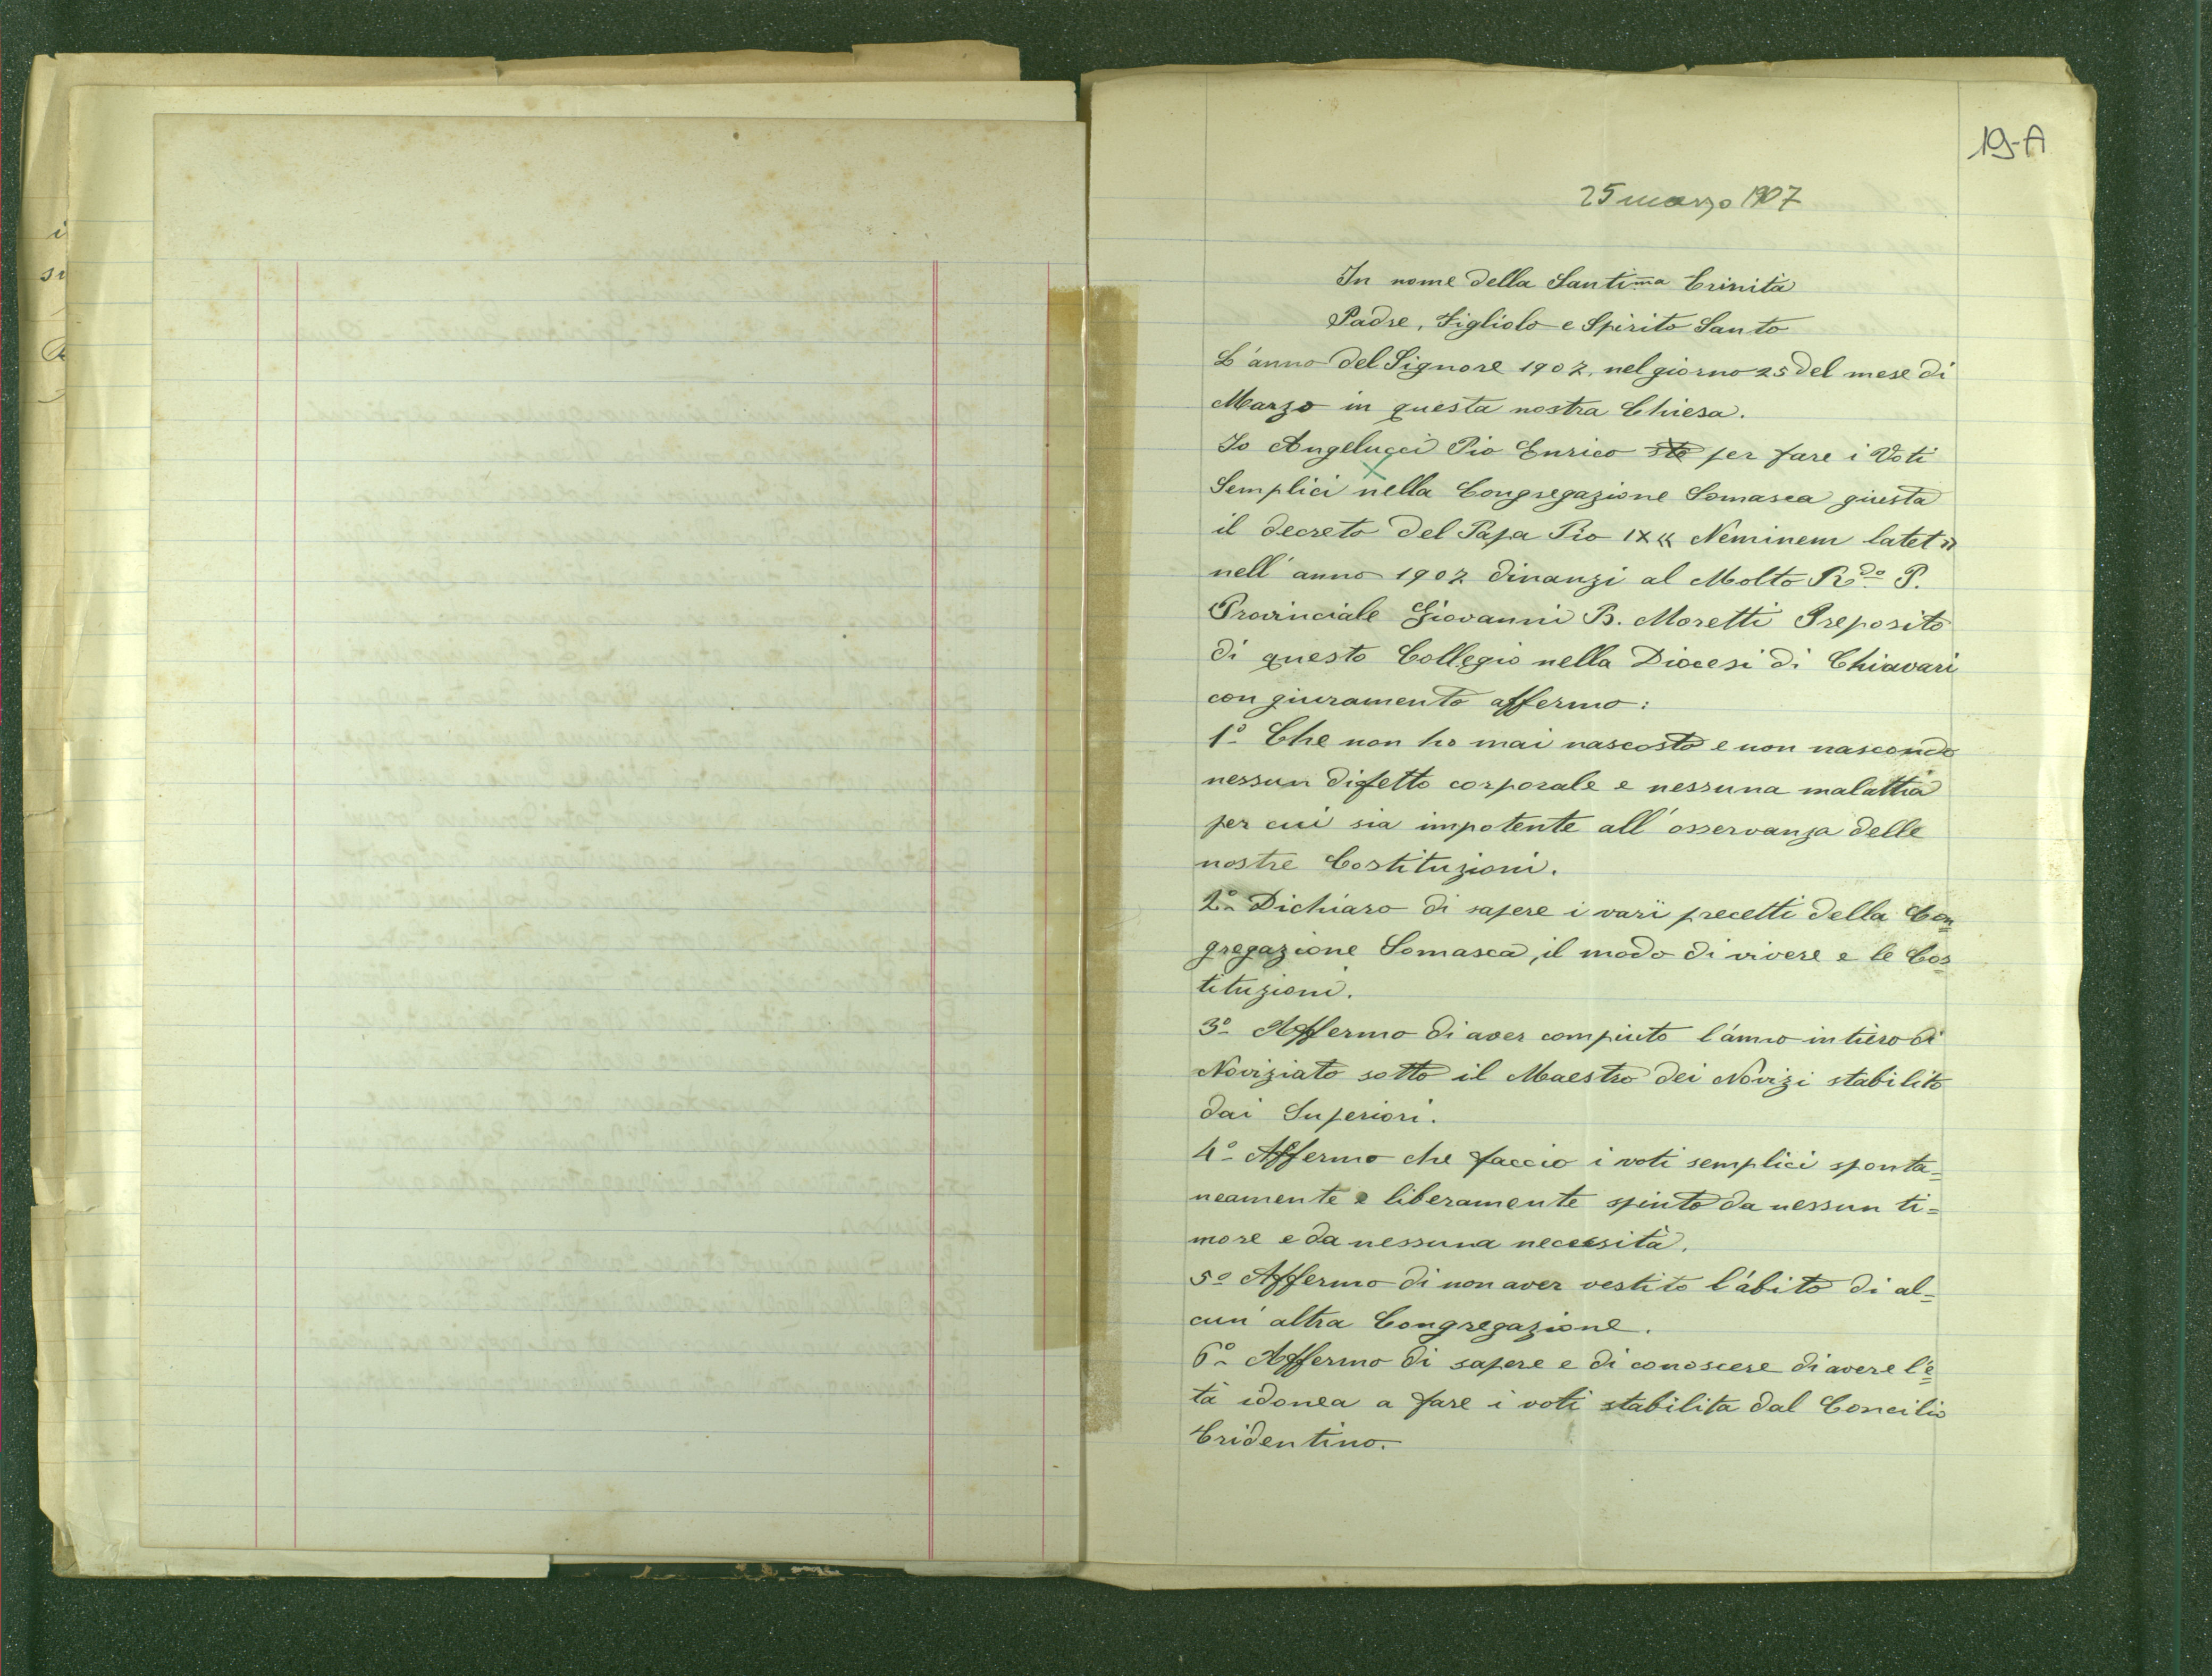 19-A
25 marzo 1907
In nome della Santima Trinità
Padre, Figliolo e Spirito Santo
L'anno del Signore 1907, nel giorno 25 del mese di
Marzo in questa nostra Chiesa.
Io Angelucci Pio Enrico sto per fare i Voti
Semplici nella Congregazione Somasca giusta
il decreto del Papa Pio IX « Neminem latet »
nell'anno 1907 dinanzi al Molto Rdo P.
Provinciale Giovanni B. Moretti Preposito
di questo Collegio nella Diocesi di Chiavari
con giuramento affermo:
1º Che non ho mai nascosto e non nascondo
nessun difetto corporale e nessuna malattia
per cui sia impotente all'osservanza delle
nostre Costituzioni.
2º Dichiaro di sapere i varï precetti della Con=
gregazione Somasca, il modo di vivere e le Cos=
tituzioni.
3º Affermo di aver compiuto l'anno intiero di
Noviziato sotto il Maestro dei Novizi stabilito
dai Superiori.
4º Affermo che faccio i voti semplici sponta=
neamente e liberamente spinto da nessun ti=
more e da nessuna necessità.
5º Affermo di non aver vestito l'abito di al=
cun'altra Congregazione.
6º Affermo di sapere e di conoscere di avere l'e=
tà idonea a fare i voti stabilita dal Concilio
Tridentino.